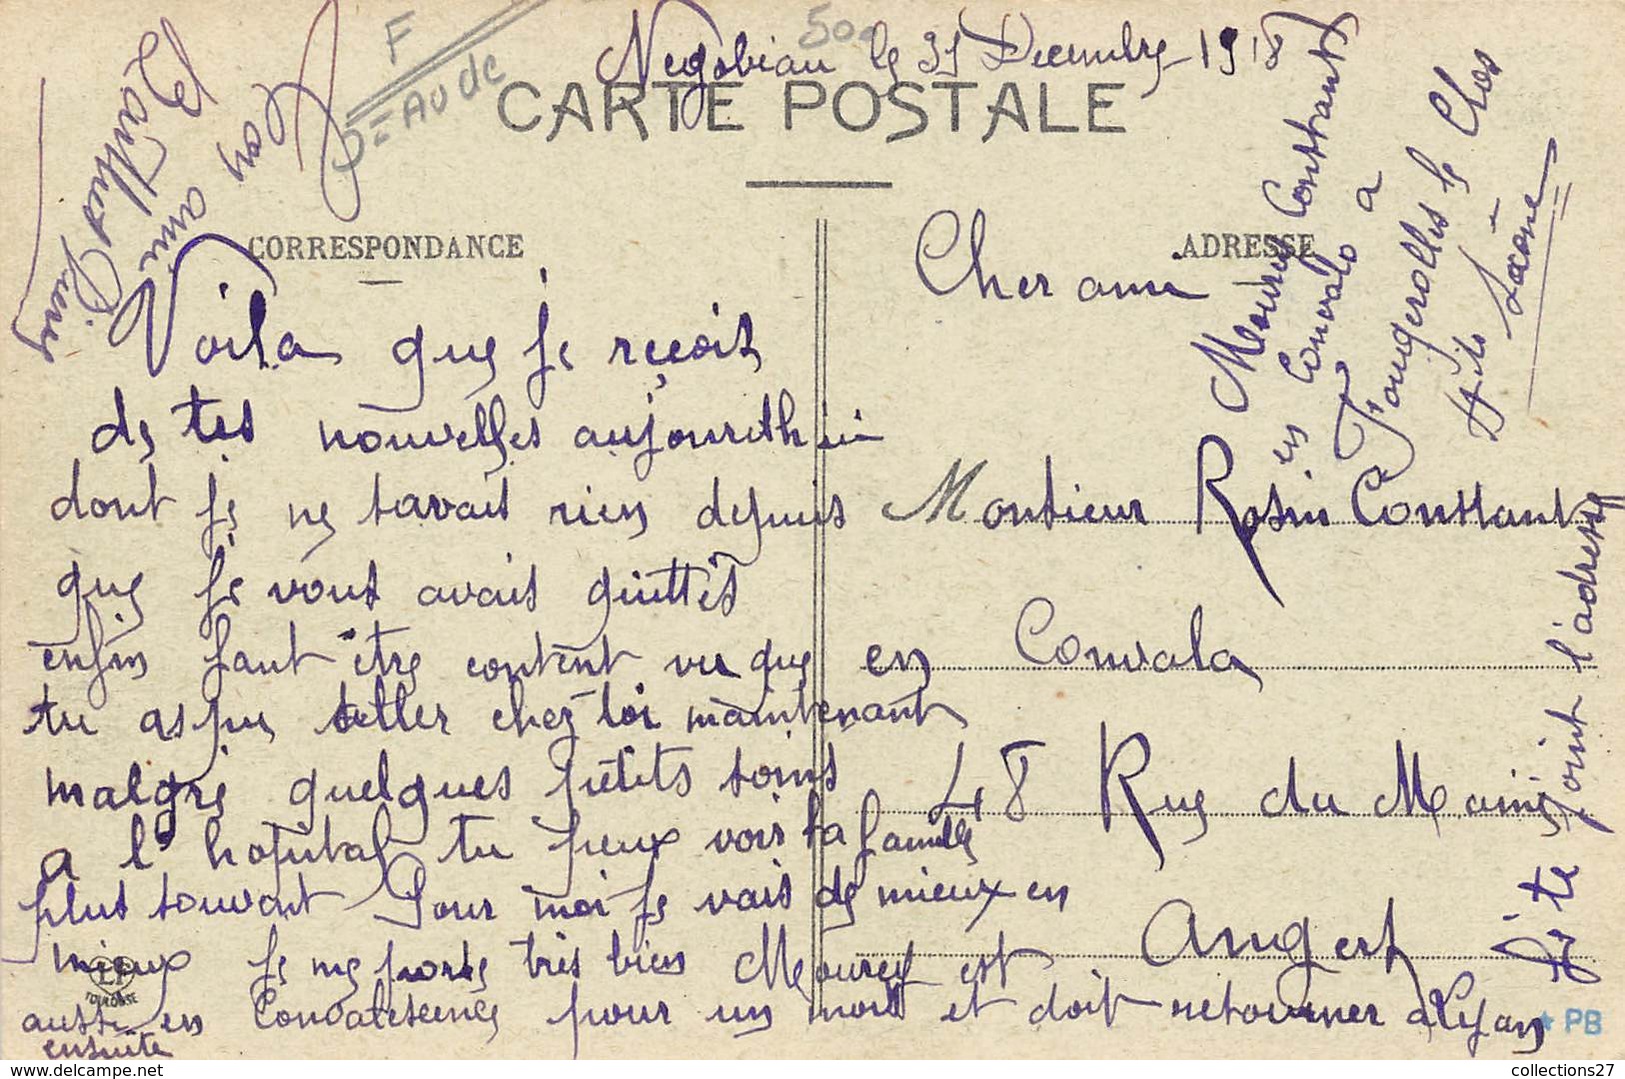 Negabiau le 31 Decembre 1918
50
F
D= AUDE
CARTE POSTALE
CORRESPONDANCE
ADRESSE
Cher ami
Voila que je reçois
de tes nouvelles aujourdhui
dont je ne savais rien depuis
que je vous avais quittés
enfin faut être content vu que
tu as pu aller chez toi maintenant
malgré quelques petits soins
a l'hopital tu peux voir ta famille
plus souvant Pour moi je vais de mieux en
mieux je me porte très bien Mourey est
aussi en Convalescence pour un mois et doit retourner a Lyon
ensuite
Ton ami
Barthes Pierre
Monsieur Rosin Constant
en Convala
48 Rue du Maine
Angers
Mourey Constant
en Convalo a
Fougerolles le Clos
Hte Saône
Je te joint l'adresse
LF
TOULOUSE
★ PB
collections27